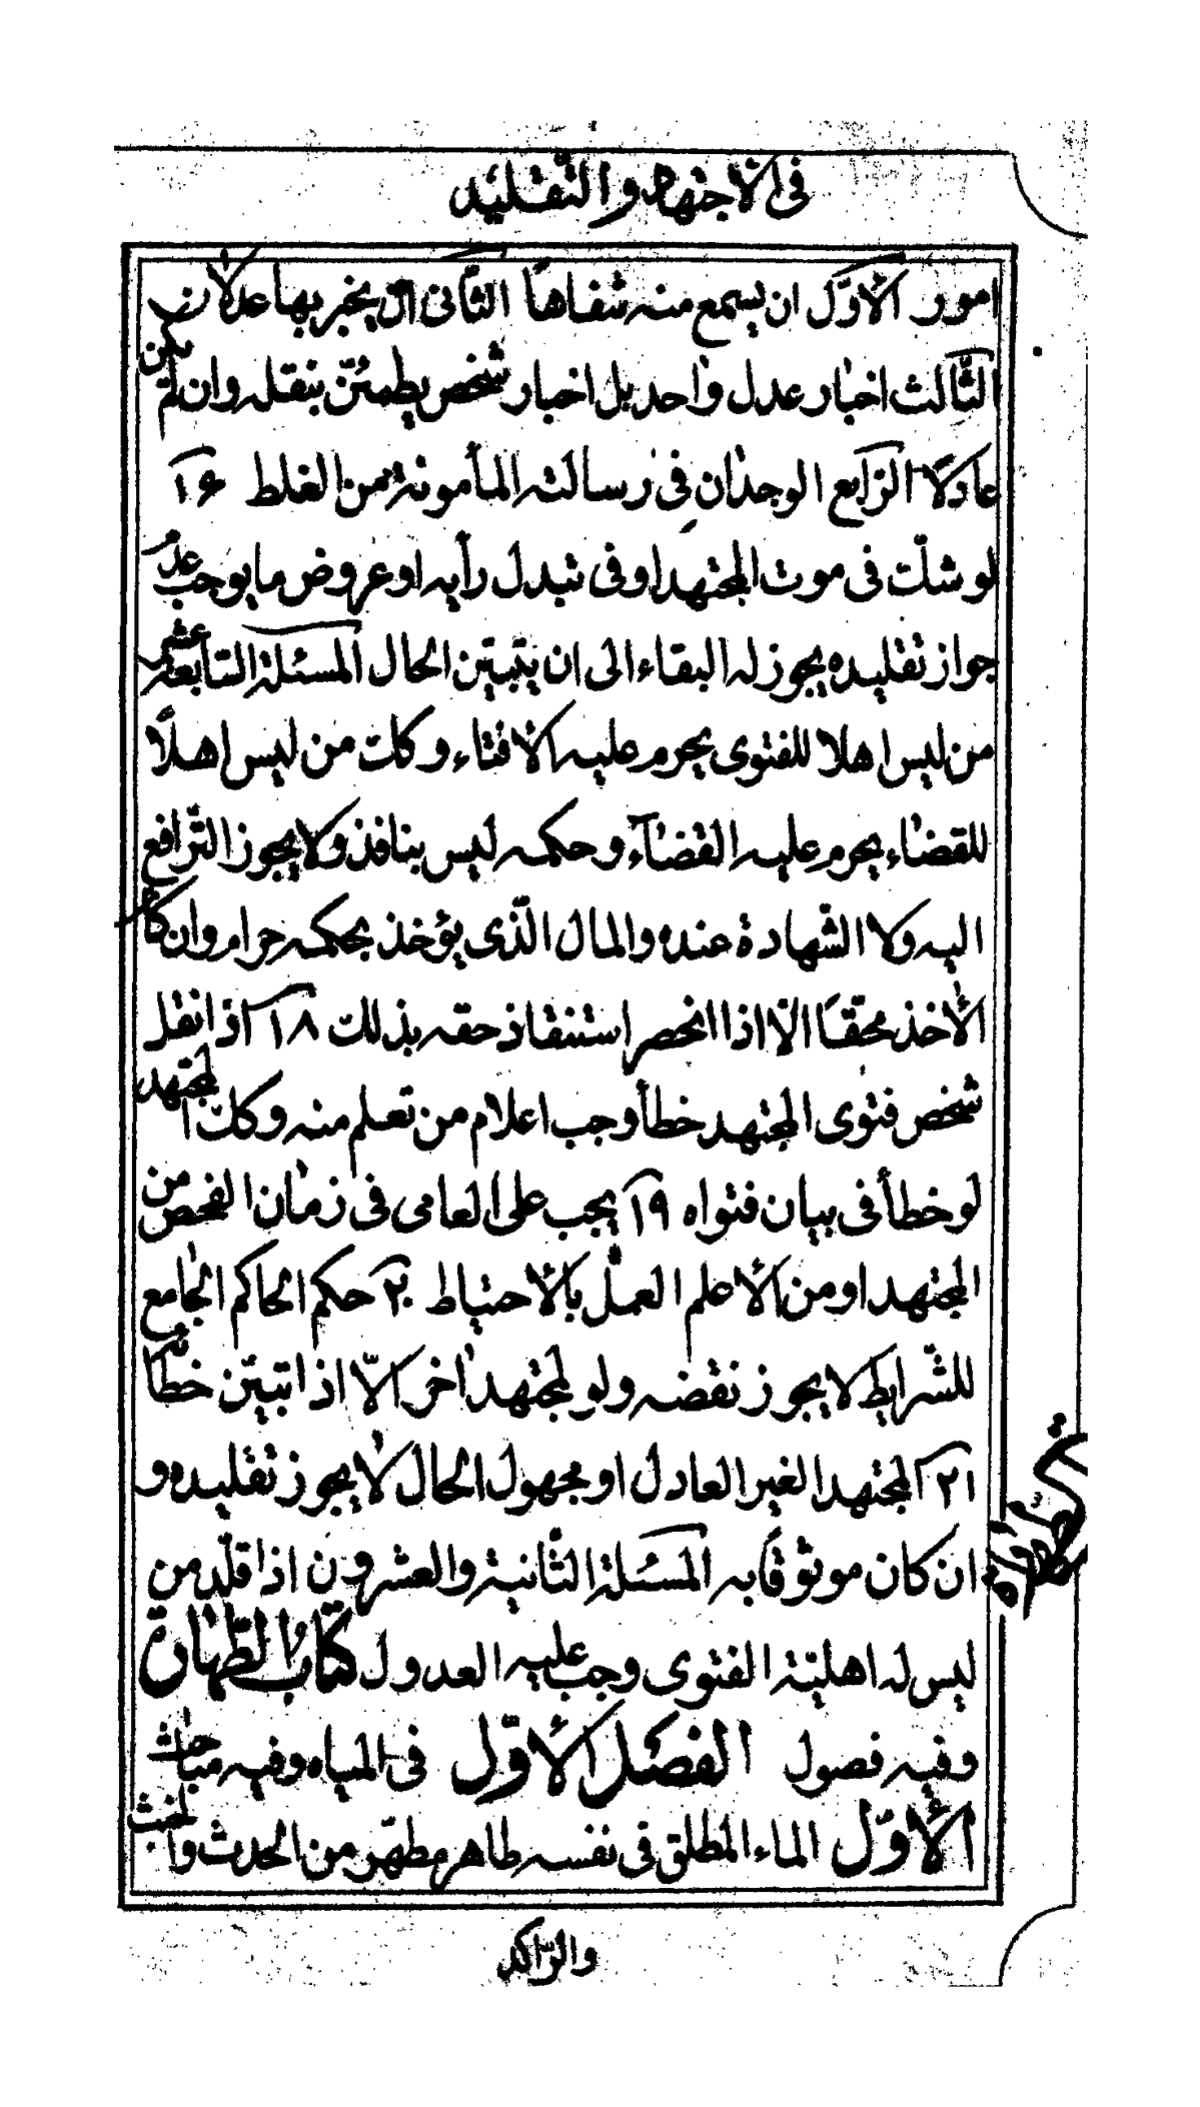 فی الاجتهاد والتّقلید
امور الأوّل ان یسمع منه شفاهًا الثّانی ان یخبر بها عدلان
الثّالث اخبار عدل واحد بل اخبار شخص یطمئنّ بنقله وان لم یکن
عادلًا الرّابع الوجدان فی رسالته المأمونة من الغلط ۱۶
لو شکّ فی موت المجتهد او فی تبدل رأیه او عروض ما یوجب عدم
جواز تقلیده یجوز له البقاء الی ان یتبیّن الحال المسئلة السّابعة عشر
من لیس اهلا للفتوی یحرم علیه الافتاء وکک من لیس اهلًا
للقضاء یحرم علیه القضاء وحکمه لیس بنافذ ولا یجوز التّرافع
الیه ولا الشّهادة عنده والمال الّذی یؤخذ بحکمه حرام وان کان
الأخذ محقّا الّا اذا انحصر استنقاذ حقه بذلک ۱۸ اذا نقل
شخص فتوی المجتهد خطأ وجب اعلام من تعلم منه وکک المجتهد
لو خطأ فی بیان فتواه ۱۹ یجب علی العامی فی زمان الفحص من
المجتهد او من الأعلم العمل بالأحتیاط ۲۰ حکم الحاکم الجامع
للشّرایط لا یجوز نقضه ولو لمجتهد اخر الّا اذا تبیّن خطّائه
۲۱ المجتهد الغیر العادل او مجهول الحال لا یجوز تقلیده و
ان کان موثوقًا به المسئلة الثّانیة والعشرون اذا قلّد من
لیس له اهلیّة الفتوی وجب علیه العدول کتاب الطّهارة
وفیه فصول الفصل الأوّل فی المیاه وفیه مباحث
الأوّل الماء المطلق فی نفسه طاهر مطهّر من الحدث والخبث
والرّاکد